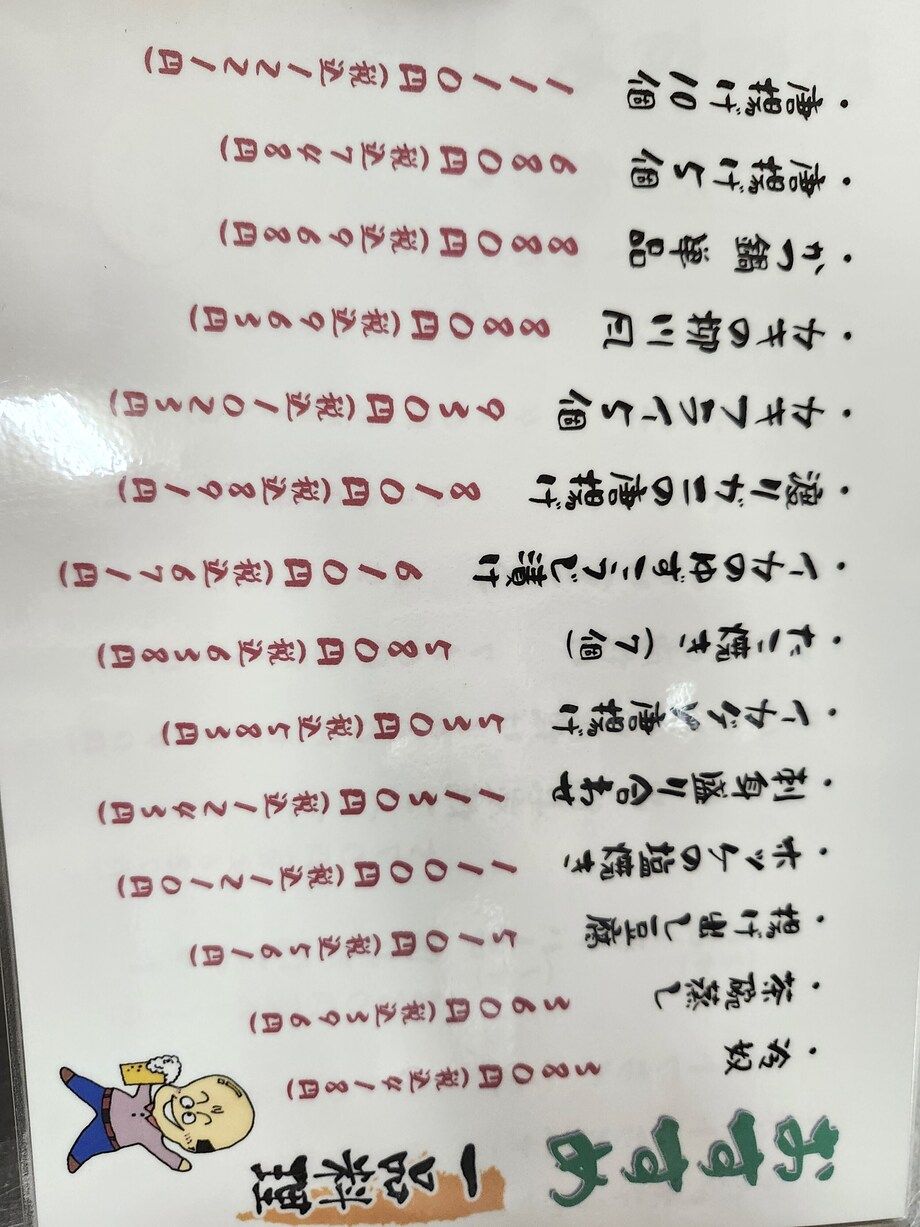 おすすめ 一品料理
・冷奴 380円(税込418円)
・茶碗蒸し 360円(税込396円)
・揚げ出し豆腐 510円(税込561円)
・ホッケの塩焼き 1100円(税込1210円)
・刺身盛り合わせ 1130円(税込1243円)
・イカゲソ唐揚げ 530円(税込583円)
・たこ焼き(7個) 580円(税込638円)
・イカのゆずこうじ漬け 610円(税込671円)
・渡りガニの唐揚げ 810円(税込891円)
・カキフライ5個 930円(税込1023円)
・カキの柳川風 880円(税込963円)
・かつ鍋 単品 880円(税込968円)
・唐揚げ5個 680円(税込748円)
・唐揚げ10個 1110円(税込1221円)